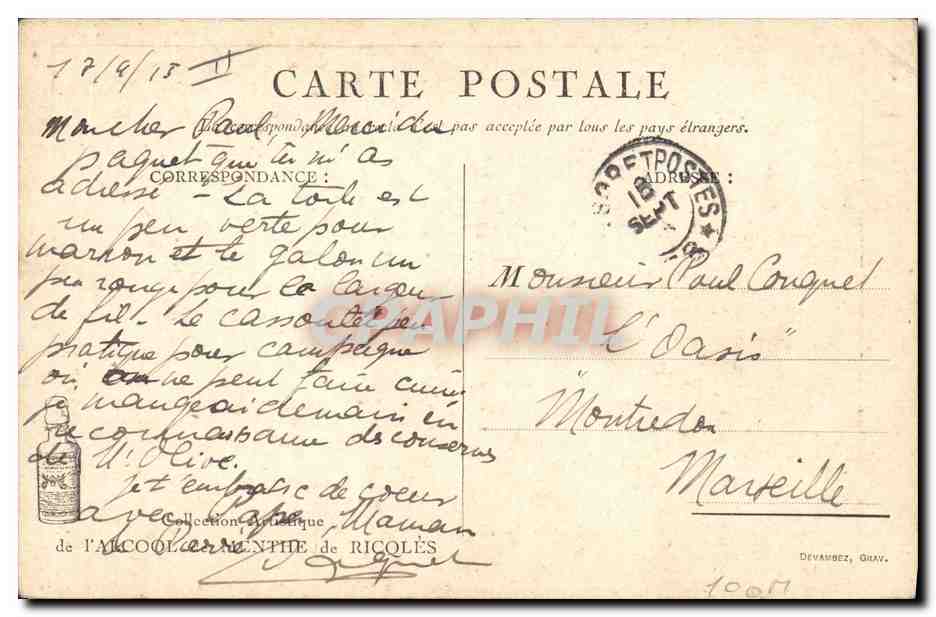 17/9/13 II
CARTE POSTALE
Mon cher Paul, Merci du
La correspondance est pas acceptée par tous les pays étrangers.
paquet que tu m'as
CORRESPONDANCE :
ADRESSE :
adressé - La toile est
un peu verte pour
marron et le galon un
peu rouge pour la largeur
de fil - Le cassoulet peu
pratique pour campagne
où on ne peut faire cuire
je mangerai demain en
connaissance des conserves
de Mr Olive.
Je t'embrasse de coeur
avec Papa, Maman
Pierre
Collection Artistique
de l'ALCOOL de MENTHE de RICQLÈS
POSTES
18
SEPT
Monsieur Paul Conquet
"L'Oasis"
"Montredon
Marseille
CPAPHIL
DEVAMBEZ, GRAV.
100M